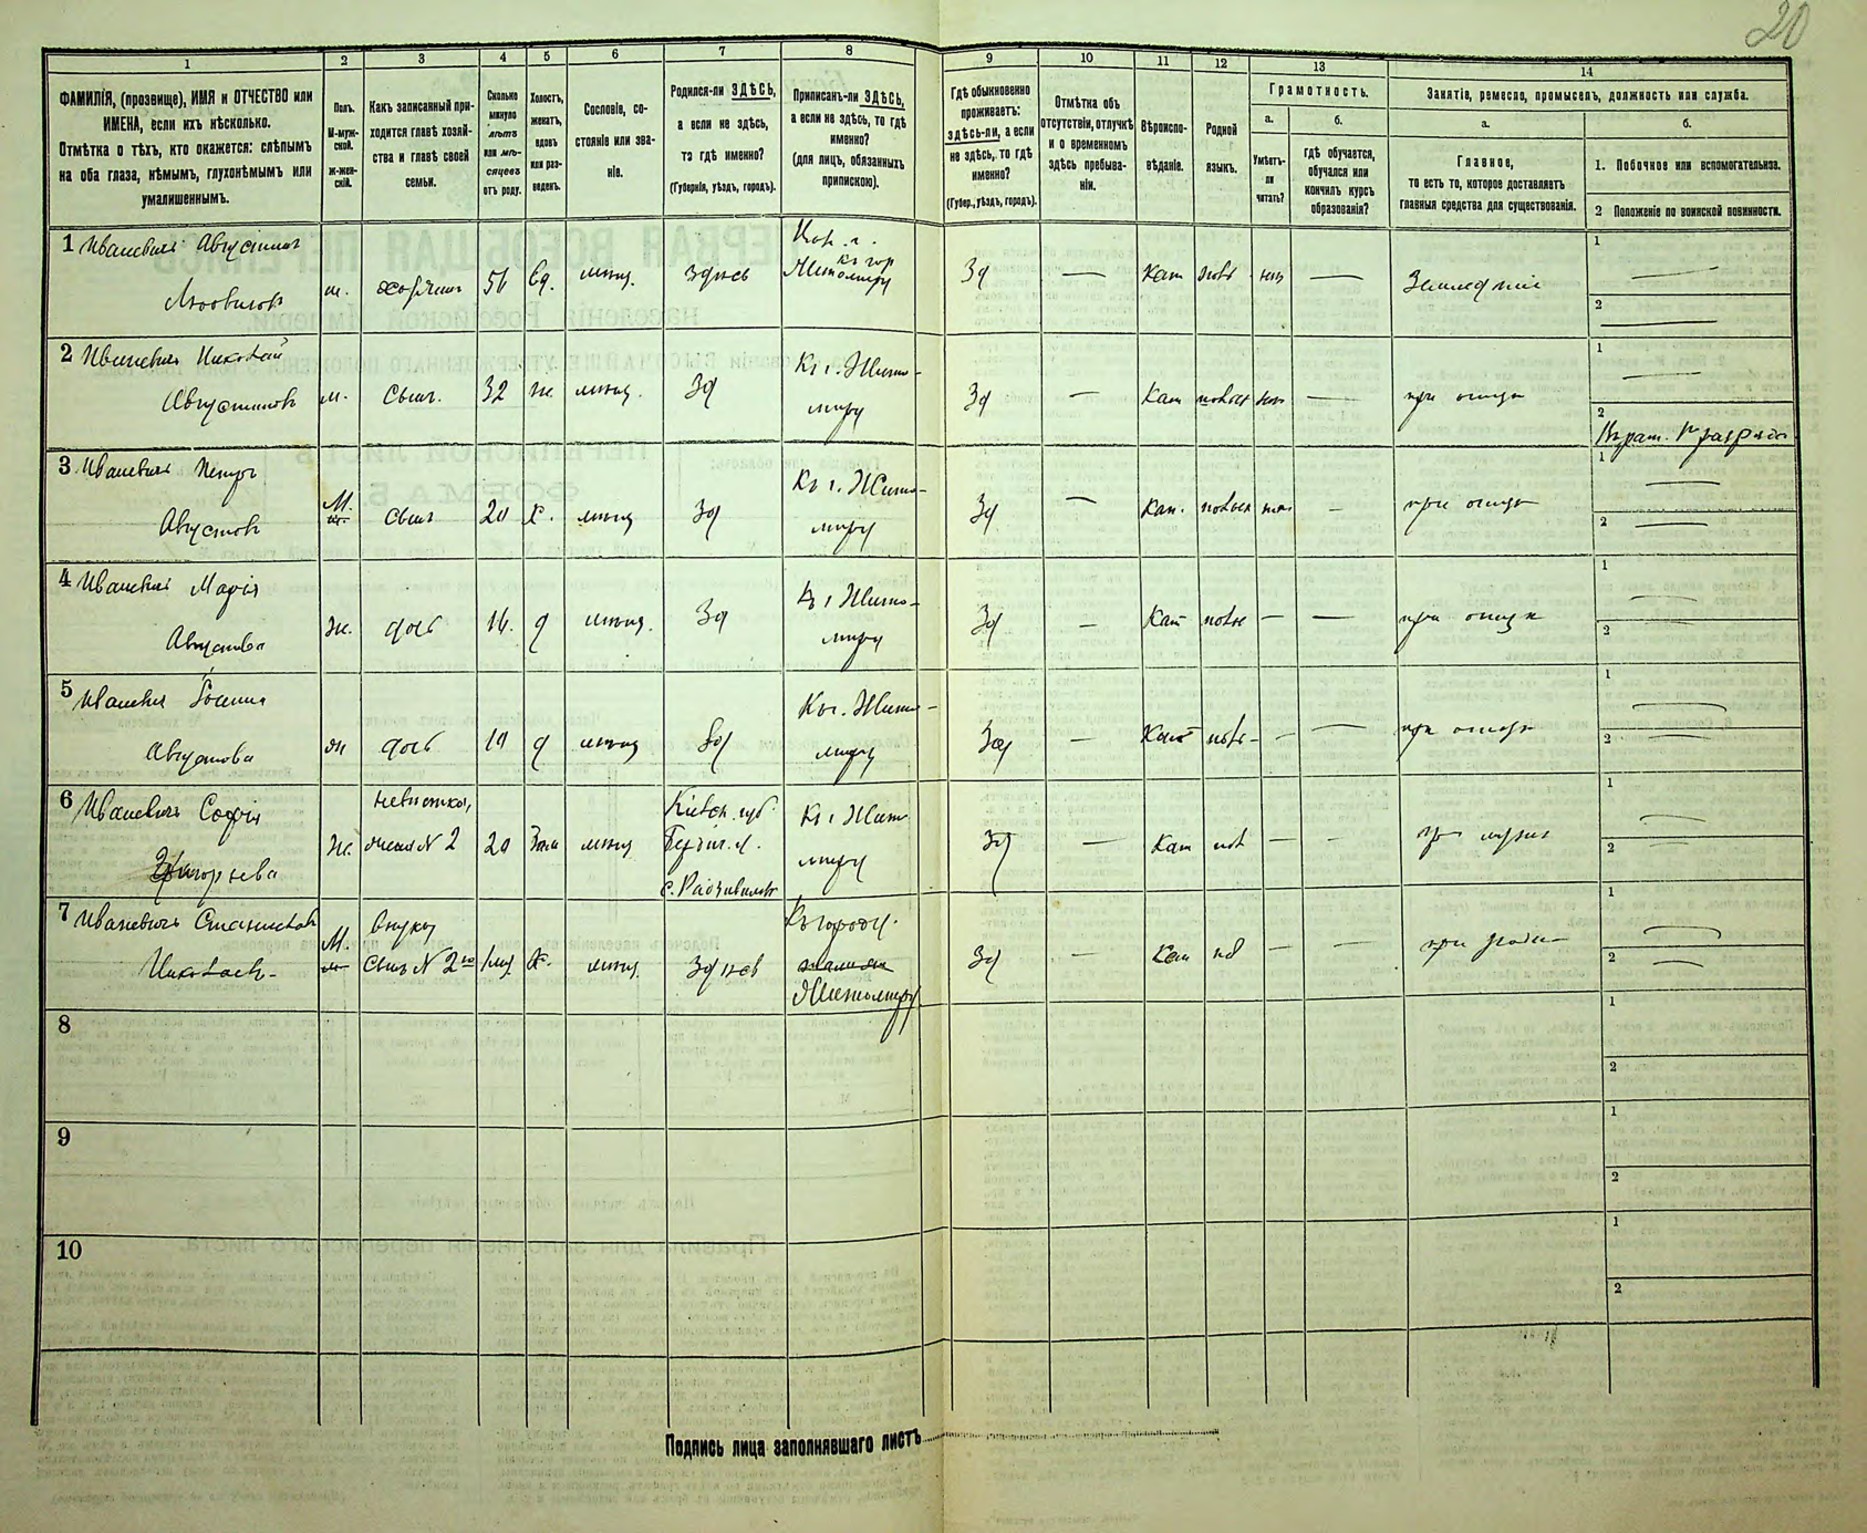 20
1
2
3
4
5
6
7
8
9
10
11
12
13
14
ФАМИЛІЯ, (прозвище), ИМЯ и ОТЧЕСТВО или
ИМЕНА, если ихъ нѣсколько.
Отмѣтка о тѣхъ, кто окажется: слѣпымъ
на оба глаза, нѣмымъ, глухонѣмымъ или
умалишеннымъ.
Полъ.
М-муж-
ской.
ж-жен-
скій.
Какъ записанный при-
ходится главѣ хозяй-
ства и главѣ своей
семьи.
Сколько
минуло
лѣтъ
или мѣ-
сяцевъ
отъ роду.
Холостъ,
женатъ,
вдовъ
или раз-
веденъ.
Сословіе, со-
стояніе или зва-
ніе.
Родился-ли ЗДѢСЬ,
а если не здѣсь,
то гдѣ именно?
(Губернія, уѣздъ, городъ).
Приписанъ-ли ЗДѢСЬ,
а если не здѣсь, то гдѣ
именно?
(для лицъ, обязанныхъ
припискою).
Гдѣ обыкновенно
проживаетъ:
здѣсь-ли, а если
не здѣсь, то гдѣ
именно?
(Губер., уѣздъ, городъ).
Отмѣтка объ
отсутствіи, отлучкѣ
и о временномъ
здѣсь пребыва-
ніи.
Вѣроиспо-
вѣданіе.
Родной
языкъ.
Грамотность.
а.
Умѣетъ-
ли
читать?
б.
гдѣ обучается,
обучался или
кончилъ курсъ
образованія?
Занятіе, ремесло, промыселъ, должность или служба.
а.
Главное,
то есть то, которое доставляетъ
главныя средства для существованія.
б.
1. Побочное или вспомогательное.
2 Положеніе по воинской повинности.
1 Иваневичъ Августинъ
м.
56
вд.
мѣщ.
здѣсь
къ гор
Житомиру
Зд
—
Кат
—
1
2
2 Иваневичъ Николай
Августиновъ
м.
сынъ.
32
ж.
мѣщ.
Зд
Къ г. Жито-
миру
Зд
—
Кат
—
при отцѣ
1
2
3 Иваневичъ Петръ
Августовъ
М.
сынъ
20
х.
мѣщ
Зд
Къ г. Жито-
миру
Зд
—
Кат.
-
при отцѣ
1
2
4 Иваневичъ Марія
Августова
ж.
дочь
14.
д
мѣщ.
Зд
Къ г Жито-
миру
Зд
—
Кат
—
—
при отцѣ
1
2
5
Августова
ж
дочь
10
д
мѣщ
Зд
Къ г. Жито-
миру
Зд
—
Кат
—
—
при отцѣ
1
2
6 Иваневичъ Софія
Григорьева
ж.
невѣстка,
жена № 2
20
Зам
мѣщ
Кіевск. губ.
Бердич. у.
Къ г Жито
миру
Зд
—
Кат
—
-
при мужѣ
1
2
7 Иваневичъ Станиславъ
Николаев-
М.
внукъ,
сынъ № 2го
х.
мѣщ.
Здѣсь
Къ городу
Житомиру
Зд
—
Кат
—
—
1
2
8
1
2
9
1
2
10
1
2
Подпись лица заполнявшаго листъ